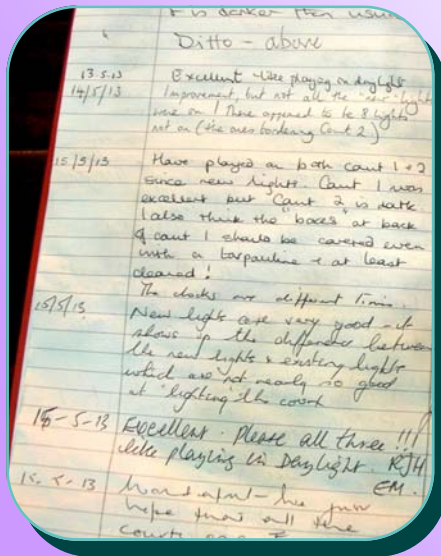 it is darker than usual
Ditto - above
13.5.13 Excellent - like playing in daylight
14/5/13 Improvement, but not all the "new" lights
were on! There appeared to be 8 lights
not on (the ones bordering Court 2)
15/5/13 Have played on both Court 1 + 2
since new lights. Court 1 was
excellent but Court 2 is dark.
I also think the "boxes" at back
of court 1 should be covered even
with a tarpauline + at least
cleared!
The clocks are different times.
15/5/13 New lights are very good - it
shows up the difference between
the new lights & existing lights
which are not nearly so good
at 'lighting' the court
15-5-13 Excellent. Please all three!!!
like playing in Daylight. RJH
EM.
15.5.13 Wonderful - we just
hope that all the
courts are